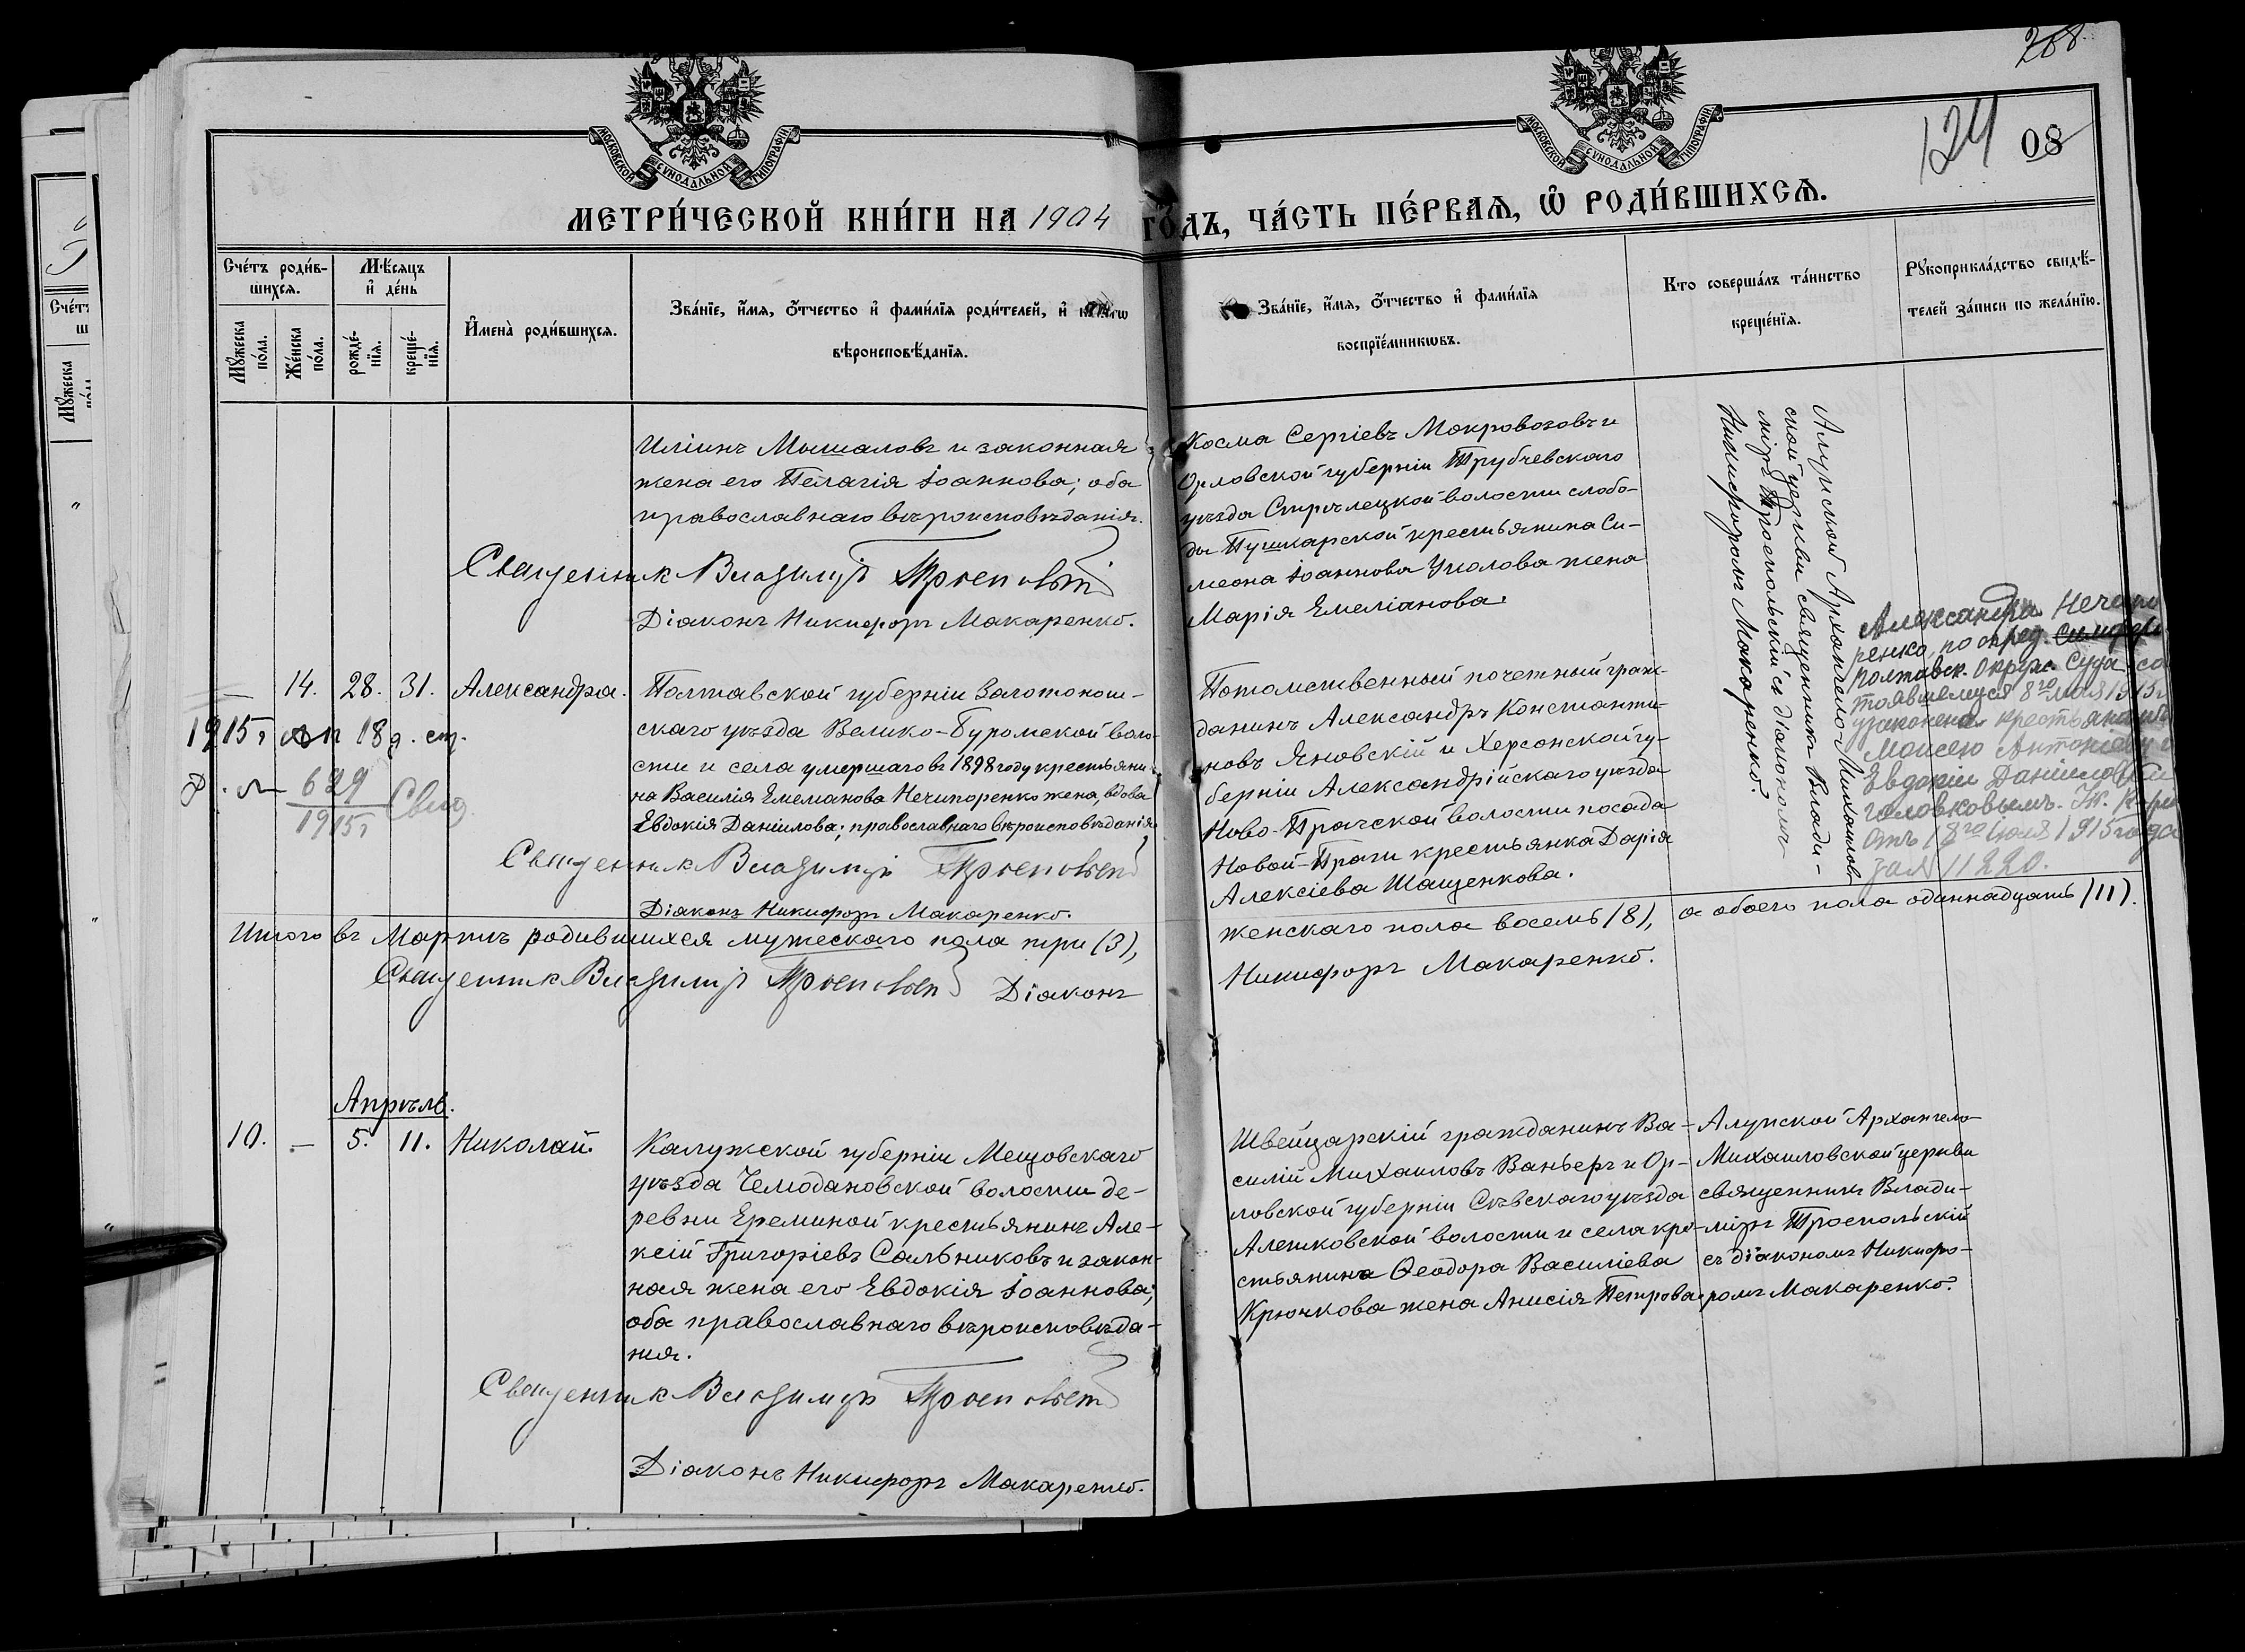 268
124
08
МОСКОВСКОЙ СУНОДАЛЬНОЙ ТИПОГРАФІИ
МОСКОВСКОЙ СУНОДАЛЬНОЙ ТИПОГРАФІИ
МЕТРИ́ЧЕСКОЙ КНИ́ГИ НА 1904 ГО́ДЪ, ЧА́СТЬ ПЕ́РВАЯ, Ѡ҆ РОДИ́ВШИХСЯ.
Сче́тъ роди́в-
шихся.
Мѣ́сяцъ
и҆ де́нь
Мꙋ́жеска
по́ла.
Же́нска
по́ла.
рожде́-
нїя.
креще́-
нїя.
И҆мена̀ роди́вшихся.
Зва́нїе, и҆́мя, ѻ҆́тчество и҆ фами́лїя роди́телей, и҆
вѣроисповѣ́данїя.
Зва́нїе, и҆́мя, ѻ҆́тчество и҆ фами́лїя
воспрїе́мникѡвъ.
Кто соверша́лъ та́инство
креще́нїя.
Рꙋкоприкла́дство свидѣ́-
телей за́писи по жела́нїю.
Иліинъ Мышаловъ и законная
жена его Пелагія Іоаннова; оба
православнаго вѣроисповѣданія.
Священникъ Владиміръ Троепольскій
Діаконъ Никифоръ Макаренко.
Косма Сергіевъ Мокровозовъ и
Орловской губерніи Трубчевскаго
уѣзда Стрѣлецкой волости слобо-
ды Пушкарской крестьянина Си-
меона Іоаннова Уколова жена
Марія Емеліанова.
Алупской Архангело-Михаилов-
ской церкви священникъ Влади-
міръ Троепольскій съ діакономъ
Никифоромъ Макаренко.
— 14. 28. 31. Александра.
Полтавской губерніи Золотонош-
скаго уѣзда Велико-Буромской воло-
сти и села умершаго въ 1898 году крестьяни-
на Василія Емельянова Нечипоренко жена, вдова
Евдокія Даніилова; православнаго вѣроисповѣданія.
Священникъ Владиміръ Троепольскій
Діаконъ Никифоръ Макаренко.
1915 г 18 д.
629
1915 г
Свид
Потомственный почетный граж-
данинъ Александръ Константи-
новъ Яновскій и Херсонской гу-
берніи Александрійскаго уѣзда
Ново-Прагской волости посада
Новой-Праги крестьянка Дарія
Алексіева Шащенкова.
Александра Нечипо
ренко, по опред. Симфер
Полтавск. Окруж. Суда, со
стоявшемуся 8го мая 1915 г
узаконена крестьянамъ
Моисею Антонову и
Евдокіи Даніиловой
Головковымъ.
отъ 18го Іюля 1915 года
за № 11220.
Итого въ Мартѣ родившихся мужескаго пола три (3), женскаго пола восемь (8), а обоего пола одиннадцать (11).
Священникъ Владиміръ Троепольскій Діаконъ Никифоръ Макаренко.
Апрѣль.
10. — 5. 11. Николай.
Калужской губерніи Мещовскаго
уѣзда Чемодановской волости де-
ревни Ереминой крестьянинъ Але-
ксій Григоріевъ Сальниковъ и закон-
ная жена его Евдокія Іоаннова;
оба православнаго вѣроисповѣда-
нія.
Священникъ Владиміръ Троепольскій
Діаконъ Никифоръ Макаренко.
Швейцарскій гражданинъ Ва-
силій Михаиловъ Ваньеръ и Ор-
ловской губерніи Сѣвскаго уѣзда
Алешковской волости и села кре-
стьянина Ѳеодора Василіева
Крючкова жена Анисія Петрова.
Алупской Архангело-
Михаиловской церкви
священникъ Влади-
міръ Троепольскій
съ діакономъ Никифо-
ромъ Макаренко.